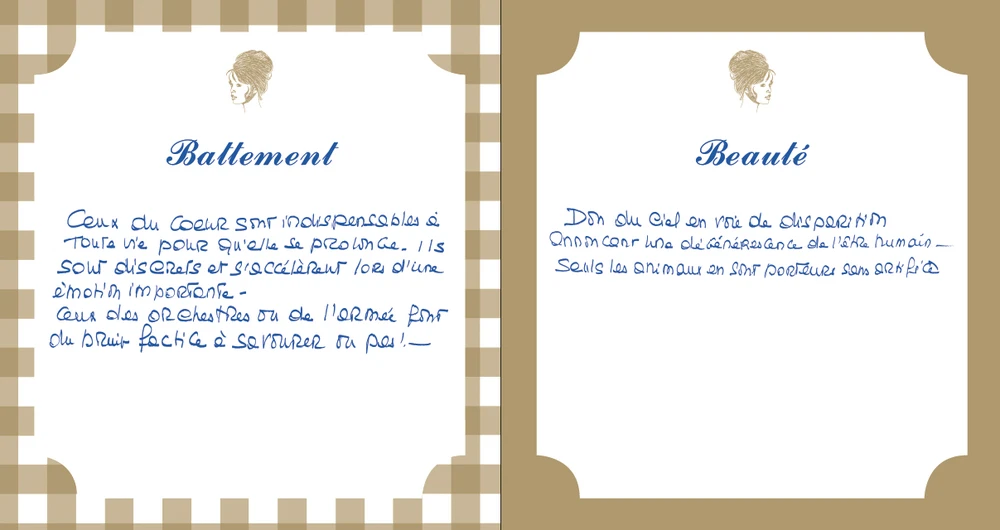 Battement
Ceux du coeur sont indispensables à
toute vie pour qu'elle se prolonge. Ils
sont discrets et s'accélèrent lors d'une
émotion importante -
Ceux des orchestres ou de l'armée font
du bruit factice à savourer ou pas! —
Beauté
Don du ciel en voie de disparition
annonçant une dégénérescence de l'être humain —
Seuls les animaux en sont porteurs sans artifice